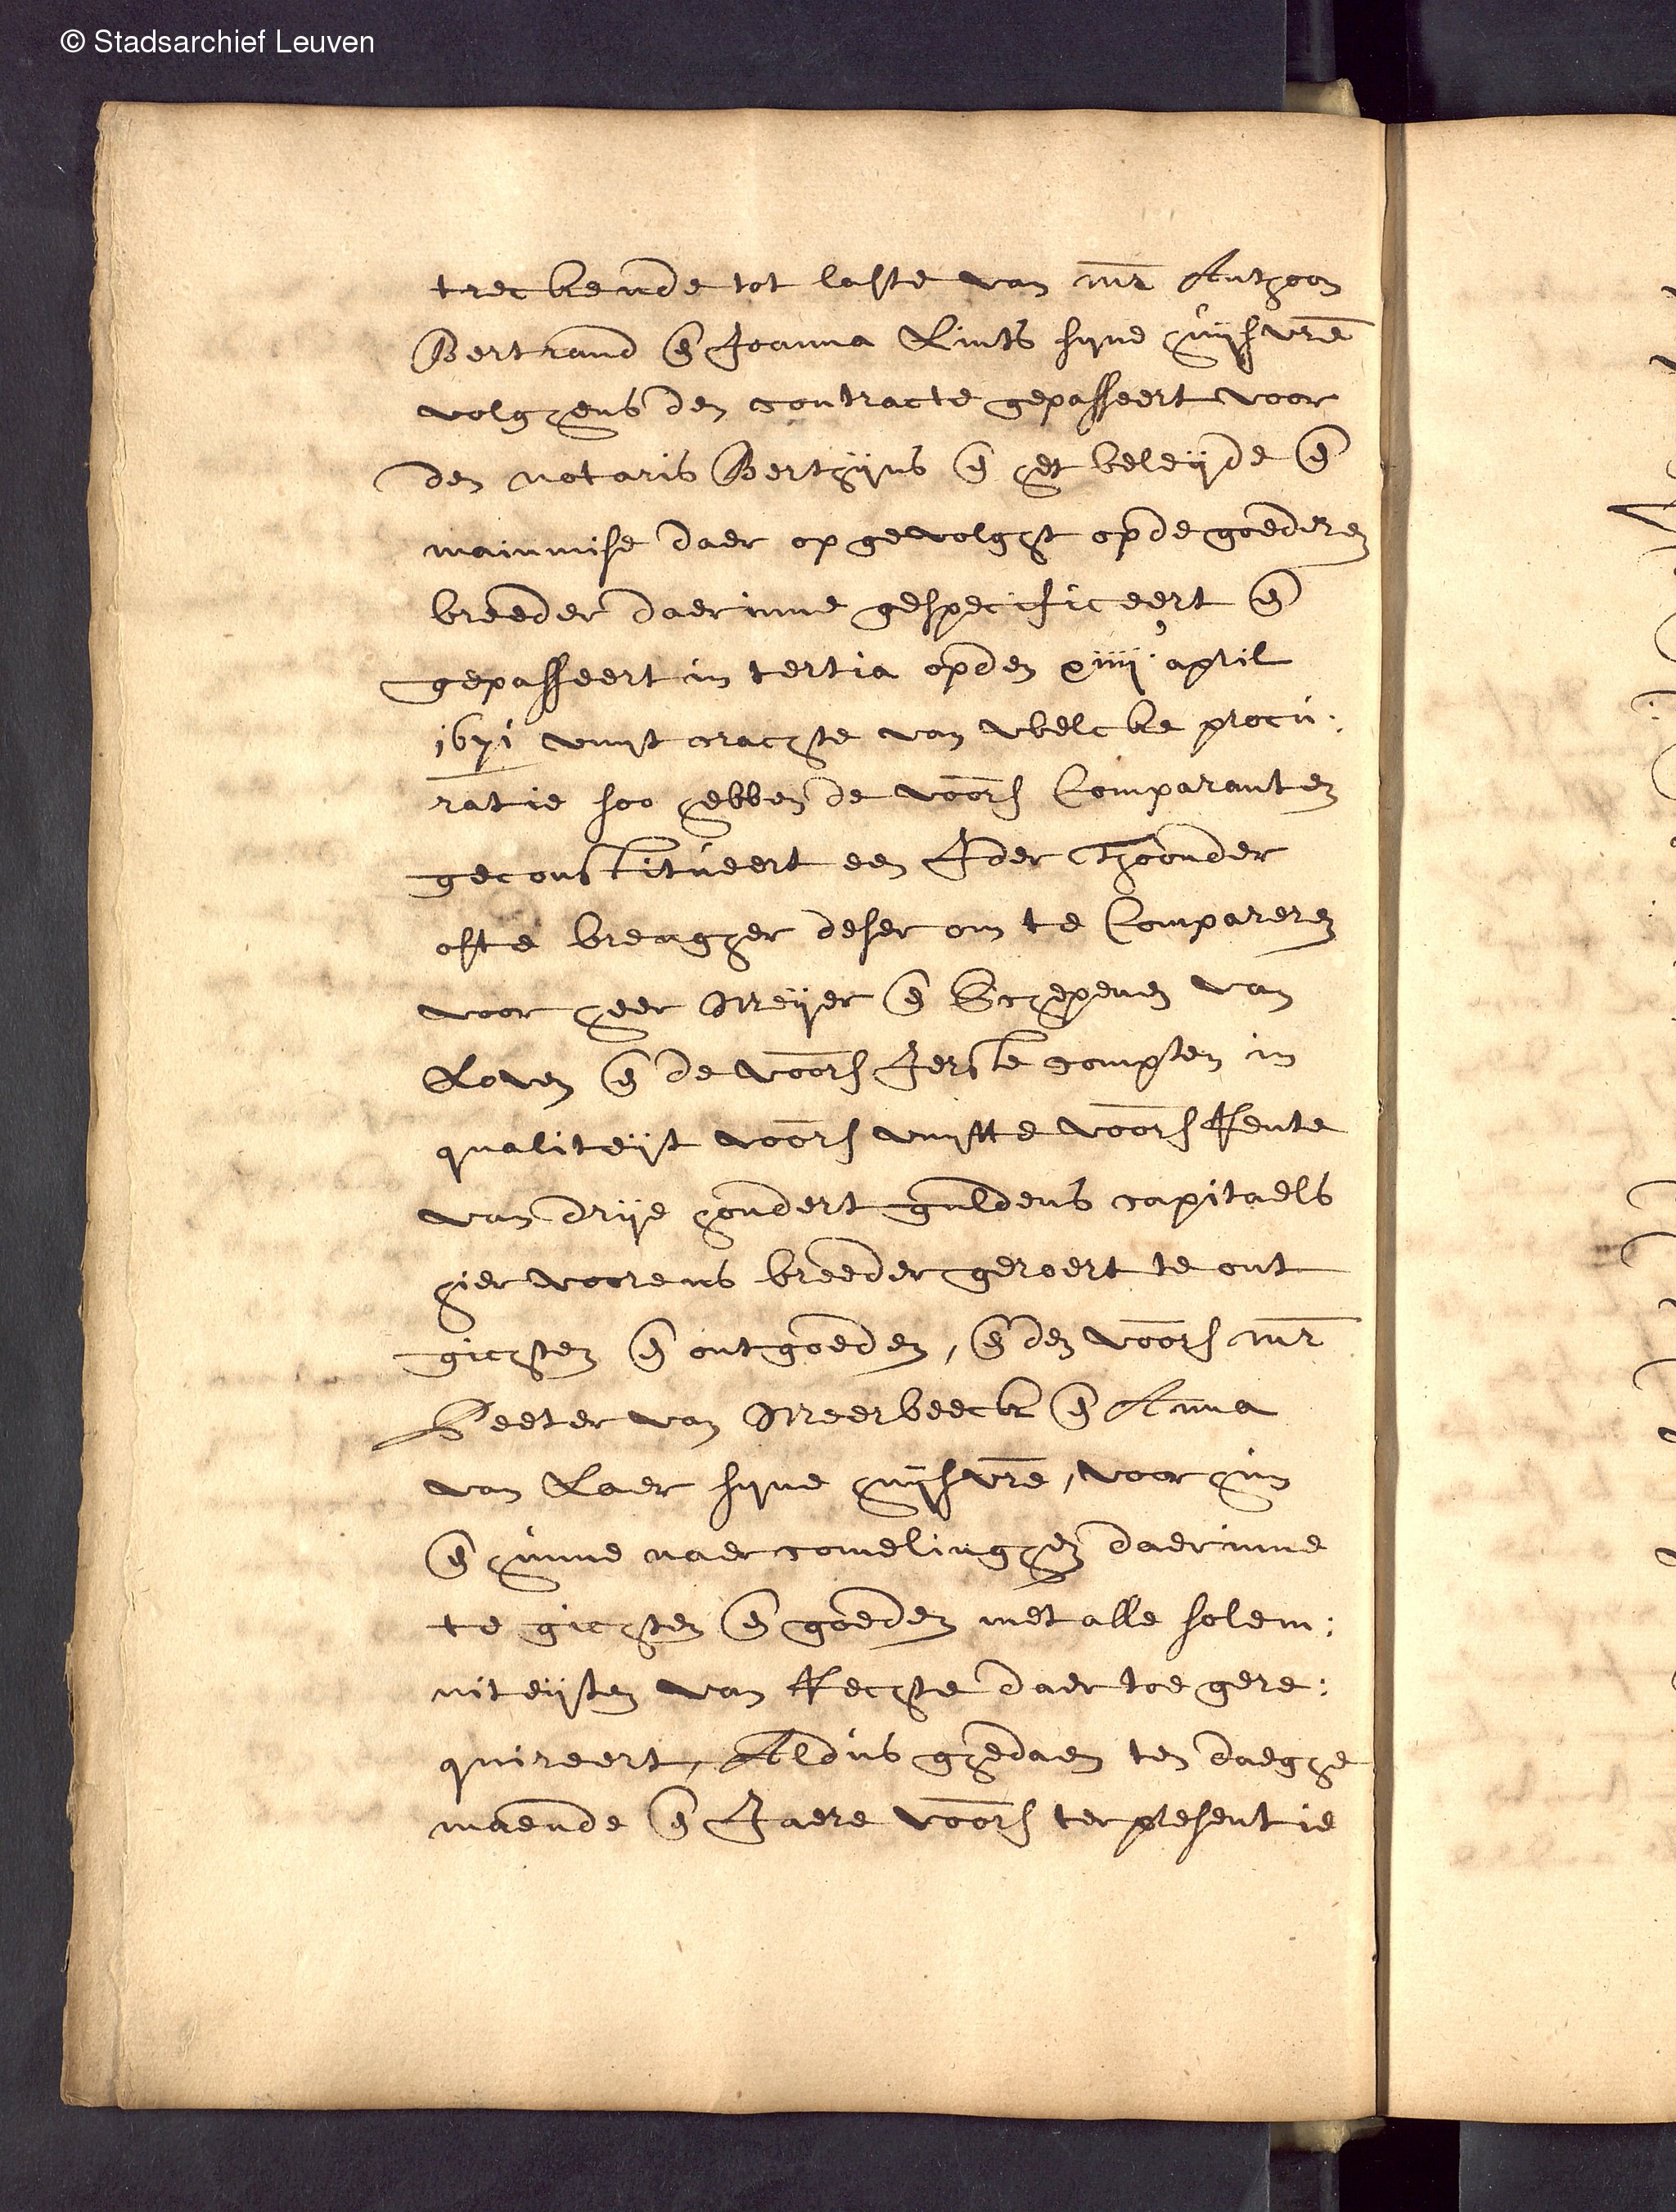 © Stadsarchief Leuven
treckende tot laste van mr Anthoon
Bertrand en Joanna Lints syne huijsvre
volghens den contracte gepasseert voor
den notaris Berthijns en het beleijde en
mainmise daer op gevolght opde goederen
breeder daerinne gespecificeert en
gepasseert in tertia opden xiiij april
1671 vuijt crachte van welcke procu:
ratie soo hebben de voors Comparanten
geconstitueert een Jder thoonder
ofte brengher deser om te Compareren
voor heer Meijer en Schepenen van
Loven en de voors Jerste compten in
qualiteijt voors vuijtte voors Rente
van drije hondert guldens capitaels
hier voorens breeder geroert te ont
gichten en ontgoeden, en den voors mr
Peeter van Meerbeeck en Anna
van Laer syne huijsvre, voor hun
en hunne naercomelinghen daerinne
te gichten en goeden met alle solem:
niteijten van Rechte daer toe gere:
quireert, Aldus ghedaen ten daeghe
maende en Jaere voors ter presentie